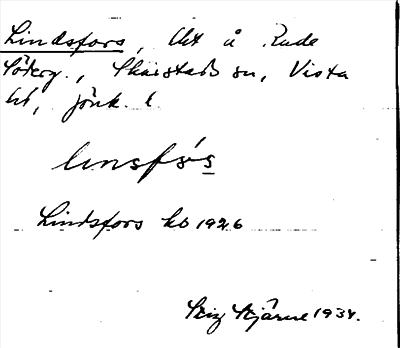 Lindsfors, Utt å Rude
Söderg., Skärstads sn, Vista
hd, Jönk. l.
linsfós
Lindsfors kb 1926
Stig Stjärne 1934.